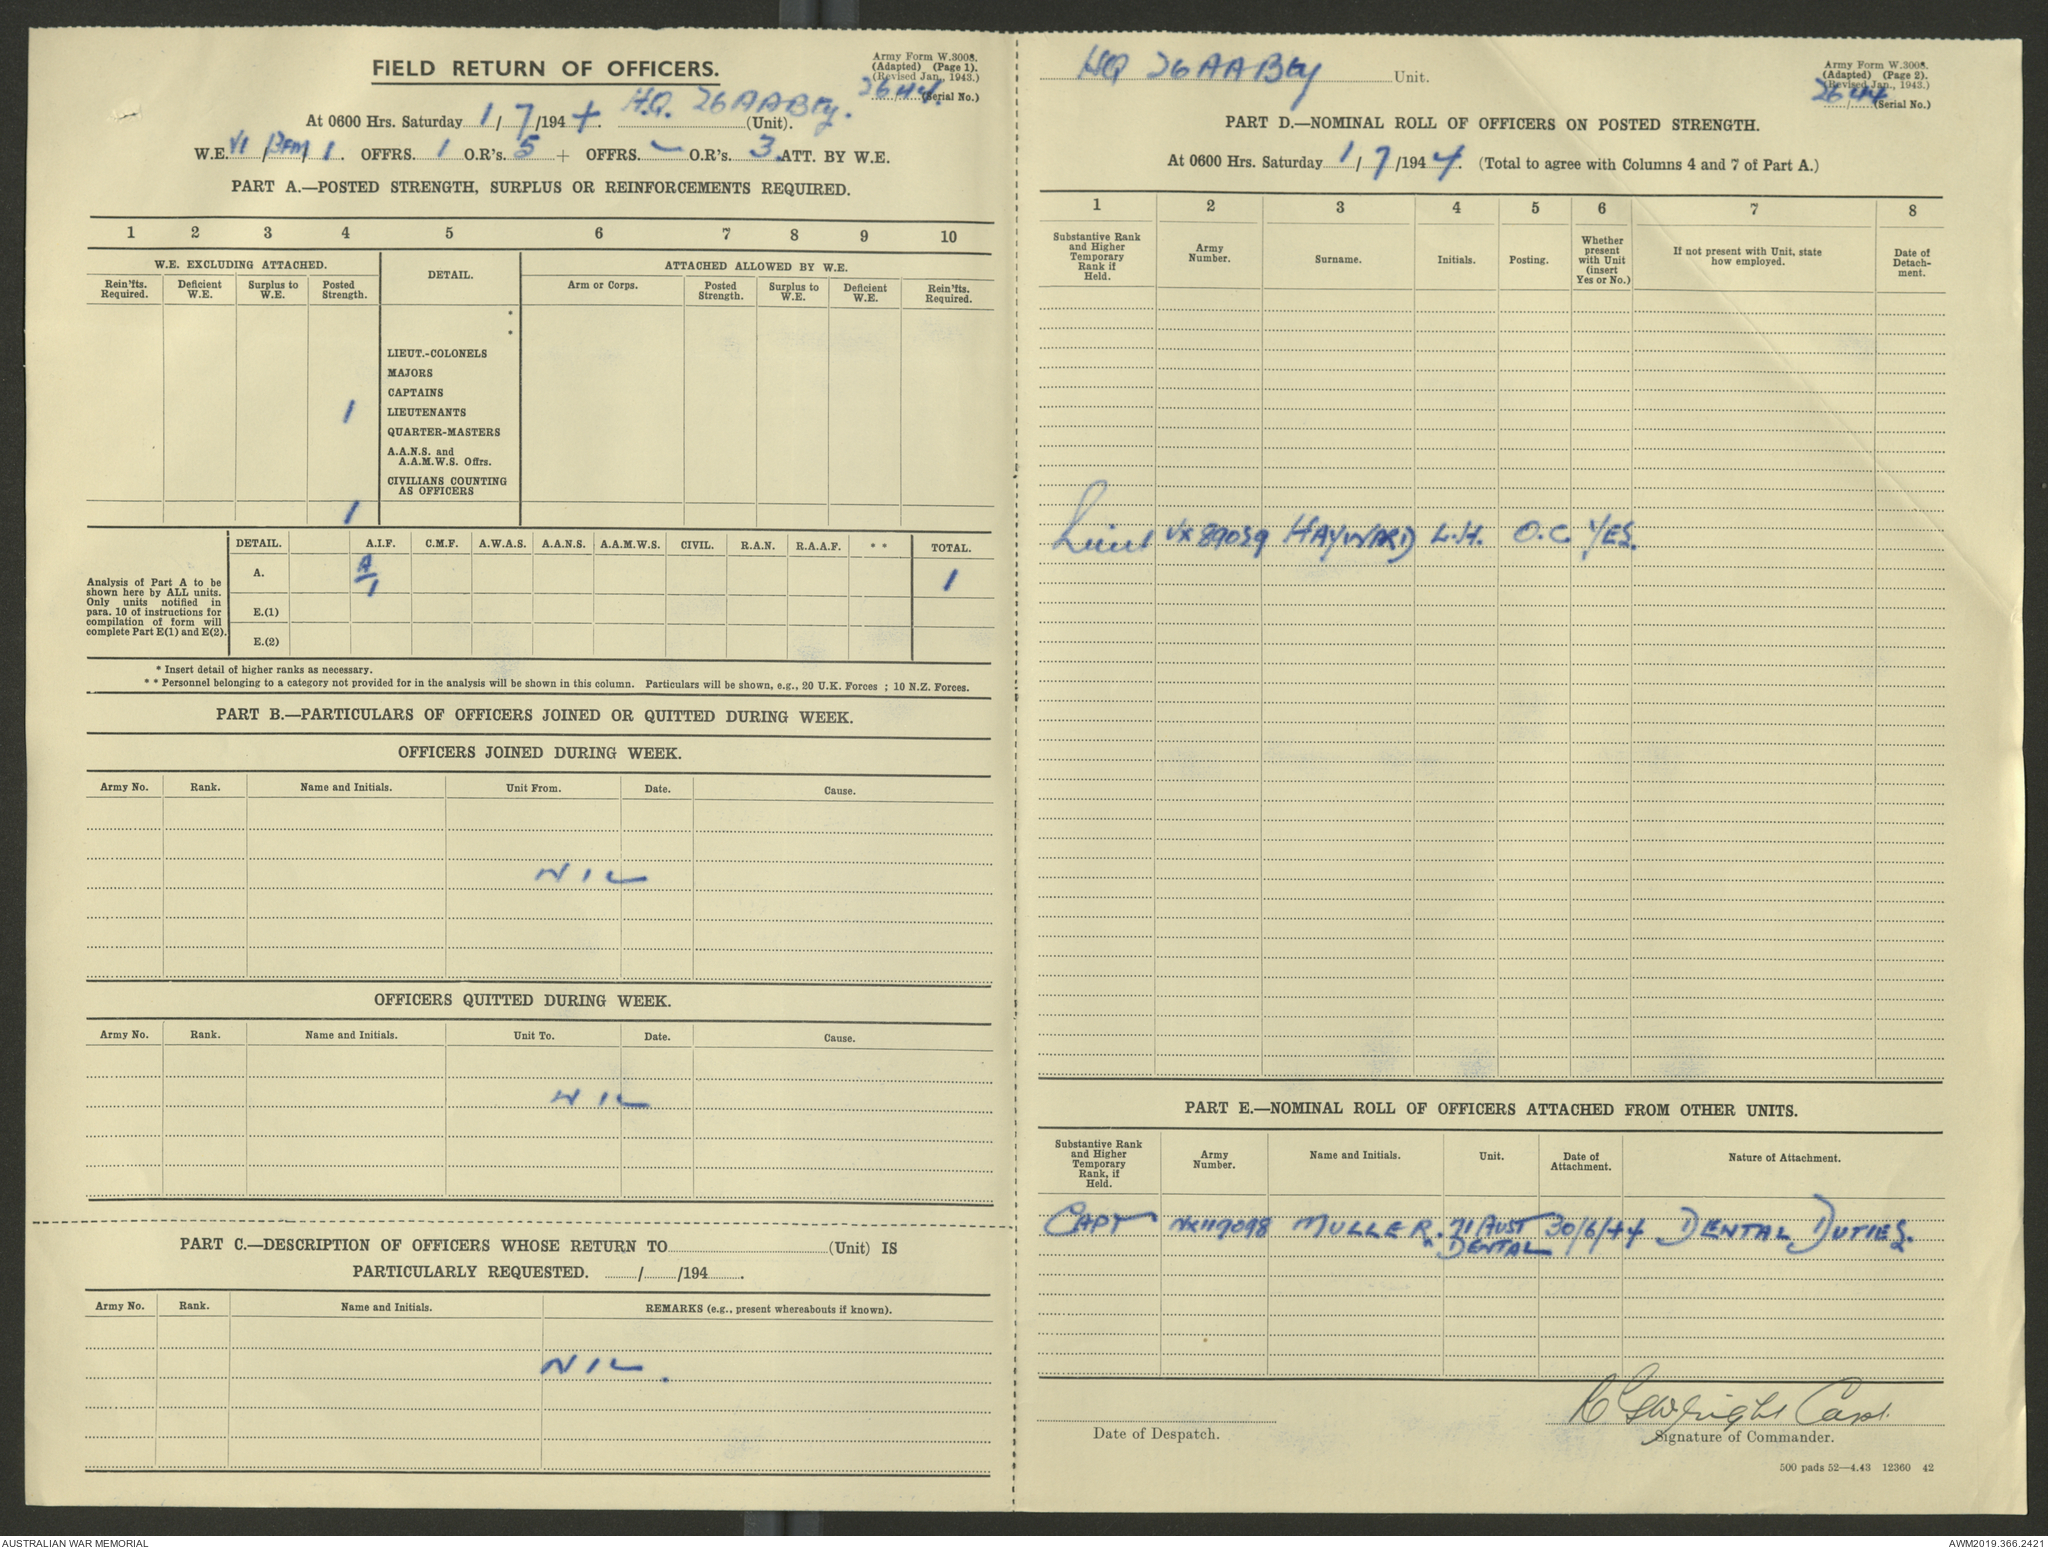 Army Form W.3008.
(Adapted) (Page 1).
(Revised Jan., 1943.)
26/44 (Serial No.)
FIELD RETURN OF OFFICERS.
At 0600 Hrs. Saturday 1/7/1944. H.Q. 26 AA Bty. (Unit).
W.E. VI / / 1. OFFRS. 1 O.R's. 5 + OFFRS. - O.R's. 3. ATT. BY W.E.
PART A.—POSTED STRENGTH, SURPLUS OR REINFORCEMENTS REQUIRED.
1 2 3 4 5 6 7 8 9 10
W.E. EXCLUDING ATTACHED. DETAIL. ATTACHED ALLOWED BY W.E.
Rein'fts. Required. Deficient W.E. Surplus to W.E. Posted Strength. Arm or Corps. Posted Strength. Surplus to W.E. Deficient W.E. Rein'fts. Required.
*
*
LIEUT.-COLONELS
MAJORS
CAPTAINS
1 LIEUTENANTS
QUARTER-MASTERS
A.A.N.S. and
A.A.M.W.S. Offrs.
CIVILIANS COUNTING
AS OFFICERS
1
DETAIL. A.I.F. C.M.F. A.W.A.S. A.A.N.S. A.A.M.W.S. CIVIL. R.A.N. R.A.A.F. * * TOTAL.
Analysis of Part A to be
shown here by ALL units.
Only units notified in
para. 10 of instructions for
compilation of form will
complete Part E(1) and E(2).
A. A/1 1
E.(1)
E.(2)
* Insert detail of higher ranks as necessary.
* * Personnel belonging to a category not provided for in the analysis will be shown in this column. Particulars will be shown, e.g., 20 U.K. Forces ; 10 N.Z. Forces.
PART B.—PARTICULARS OF OFFICERS JOINED OR QUITTED DURING WEEK.
OFFICERS JOINED DURING WEEK.
Army No. Rank. Name and Initials. Unit From. Date. Cause.
NIL
OFFICERS QUITTED DURING WEEK.
Army No. Rank. Name and Initials. Unit To. Date. Cause.
NIL
PART C.—DESCRIPTION OF OFFICERS WHOSE RETURN TO (Unit) IS
PARTICULARLY REQUESTED. / /194 .
Army No. Rank. Name and Initials. REMARKS (e.g., present whereabouts if known).
NIL.
HQ 26 AA Bty Unit.
Army Form W.3008.
(Adapted) (Page 2).
(Revised Jan., 1943.)
26/44 (Serial No.)
PART D.—NOMINAL ROLL OF OFFICERS ON POSTED STRENGTH.
At 0600 Hrs. Saturday 1/7/1944. (Total to agree with Columns 4 and 7 of Part A.)
1 2 3 4 5 6 7 8
Substantive Rank and Higher Temporary Rank if Held. Army Number. Surname. Initials. Posting. Whether present with Unit (insert Yes or No.) If not present with Unit, state how employed. Date of Detachment.
Lieut VX89059 HAYWARD L.H. O.C YES.
PART E.—NOMINAL ROLL OF OFFICERS ATTACHED FROM OTHER UNITS.
Substantive Rank and Higher Temporary Rank, if Held. Army Number. Name and Initials. Unit. Date of Attachment. Nature of Attachment.
CAPT NX119098 MULLER. 71 AUST 30/6/44 DENTAL DUTIES.
DENTAL
Wright Capt.
Date of Despatch. Signature of Commander.
500 pads 52—4.43 12360 42
AUSTRALIAN WAR MEMORIAL AWM2019.366.2421